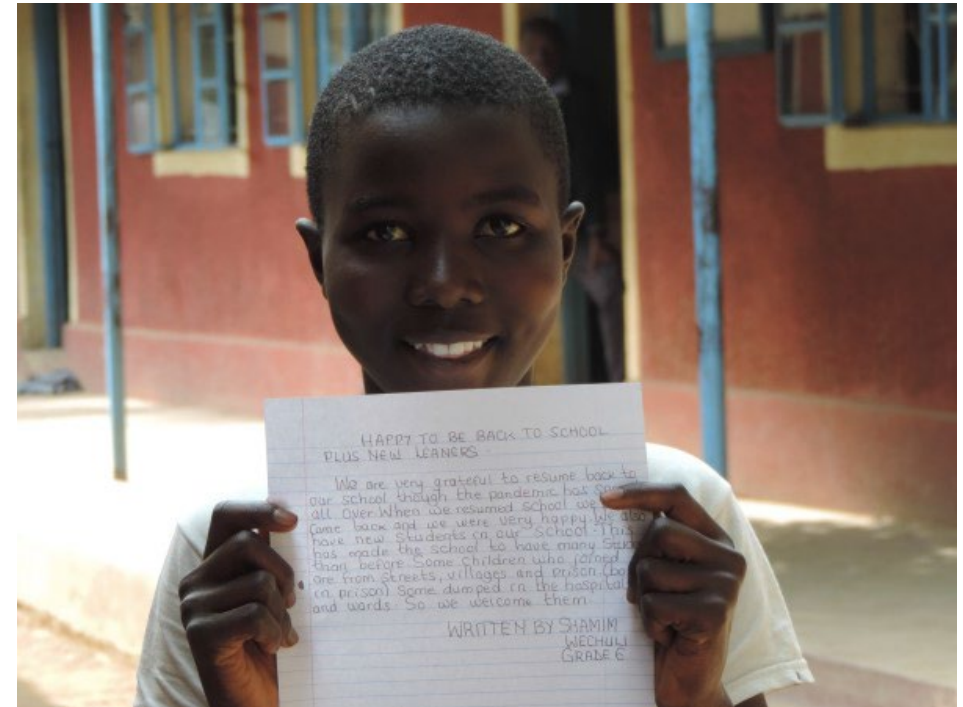 HAPPY TO BE BACK TO SCHOOL
PLUS NEW LEANERS
We are very grateful to resume back to
our school though the pandemic has
all over. When we resumed school we
came back and we were very happy. We also
have new students in our school. This
has made the school to have many
than before. Some children who joined
are from streets, villages and prison
in prison) Some dumped in the hospital
and wards. So we welcome them.
WRITTEN BY SHAMIM
WECHULI
GRADE 6